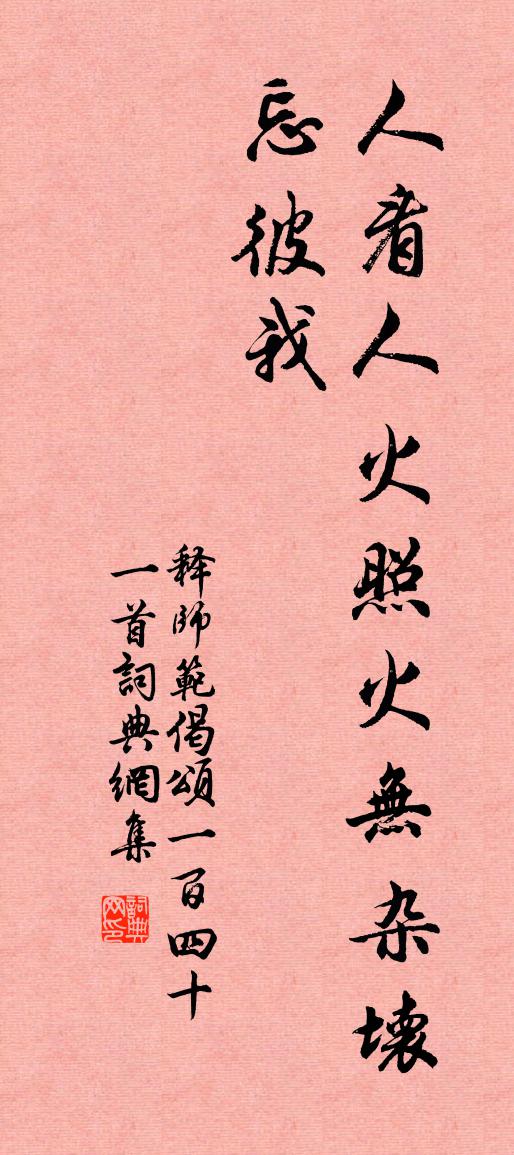 人看人火照火無杂壞
忘彼我
释師範偈頌一百四十
一首詞典網集
詞典
网印